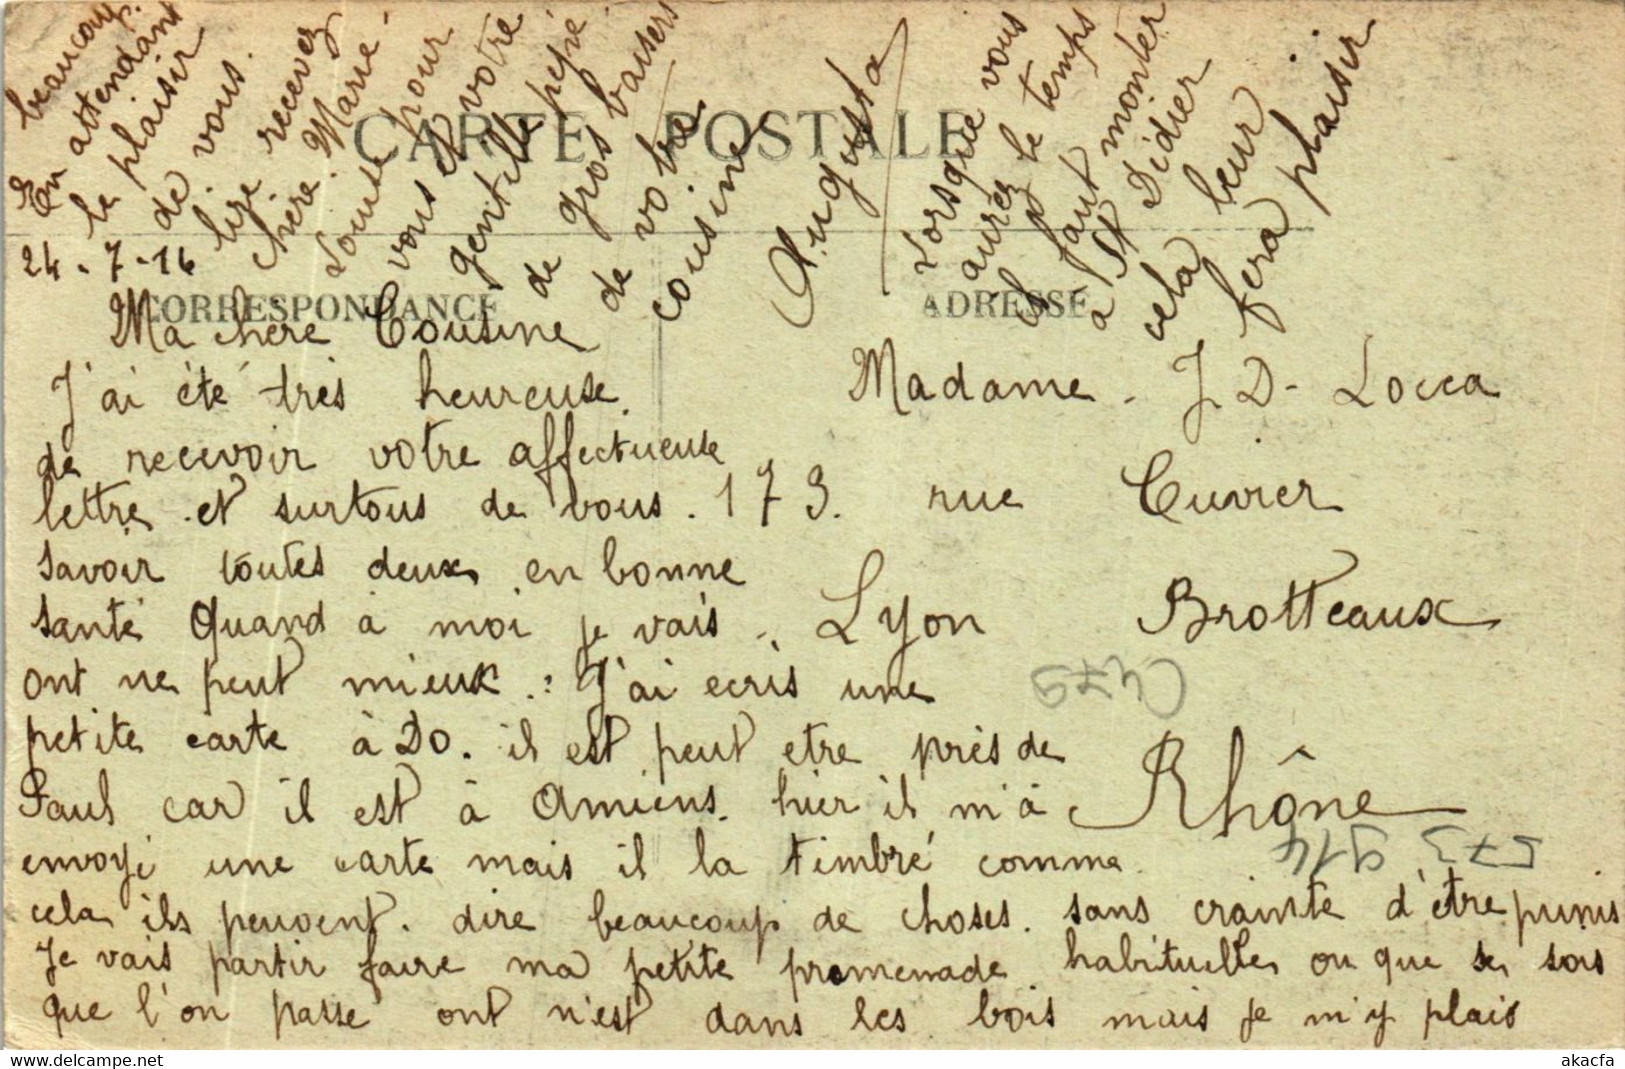 CARTE POSTALE
CORRESPONDANCE
ADRESSE
24-7-16
Ma chère Cousine
J'ai été très heureuse
de recevoir votre affectueuse
lettre et surtous de vous
savoir toutes deux en bonne
santé Quand à moi je vais
ont ne peut mieux : J'ai ecris une
petite carte à Do. il est peut etre près de
Paul car il est à Amiens. hier il m'à
envoyé une carte mais il la timbré comme
cela ils peuvent dire beaucoup de choses. sans crainte d'être punis
Je vais partir faire ma petite promenade habituelle ou que se sois
que l'on passe ont n'est dans les bois mais je m'y plais
beaucoup.
En attendant
le plaisir
de vous
lire recevez
chère Marie
Louise pour
vous et votre
gentille pepie
de gros baisers
de votre
cousine
Augusta
Lorsque vous
aurez le temps
il faut monter
à St Didier
cela leur
fera plaisir
Madame J. D. Locca
173. rue Cuvier
Lyon Brotteaux
Rhône
573 914
akacfa